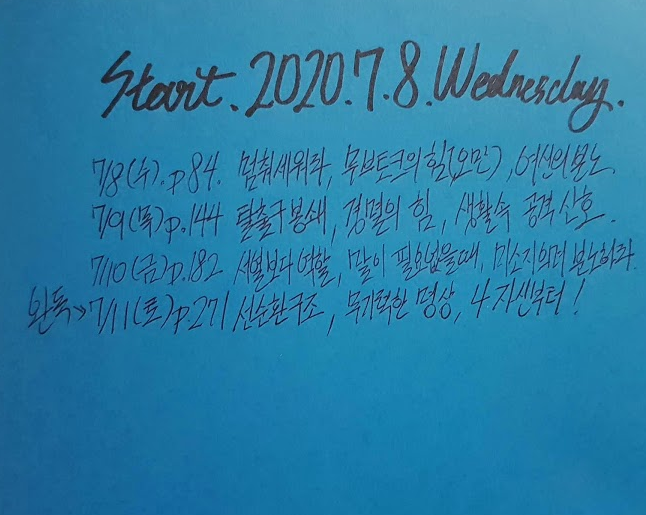 Start. 2020. 7. 8. Wednesday.
7/8(수). p84. 멈춰세워라, 무브토크의 힘(오만), 여신의 분노.
7/9(목)p.144 탈출구 봉쇄, 경멸의 힘, 생활속 공격 신호.
7/10(금)p.182 서열보다 역할, 말이 필요없을때, 미소지으며 분노하라.
완독→7/11(토)p.271 선순환구조, 무기력한 명상, 나 자신부터!